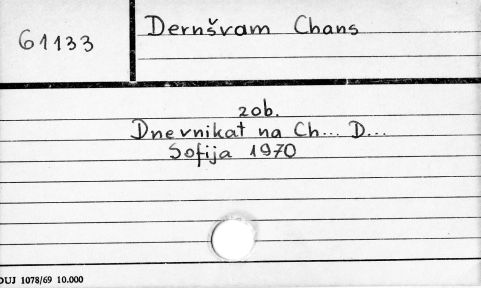 61133
Dernšvam Chans
zob.
Dnevnikat na Ch... D...
Sofija 1970
DUJ 1078/69 10.000